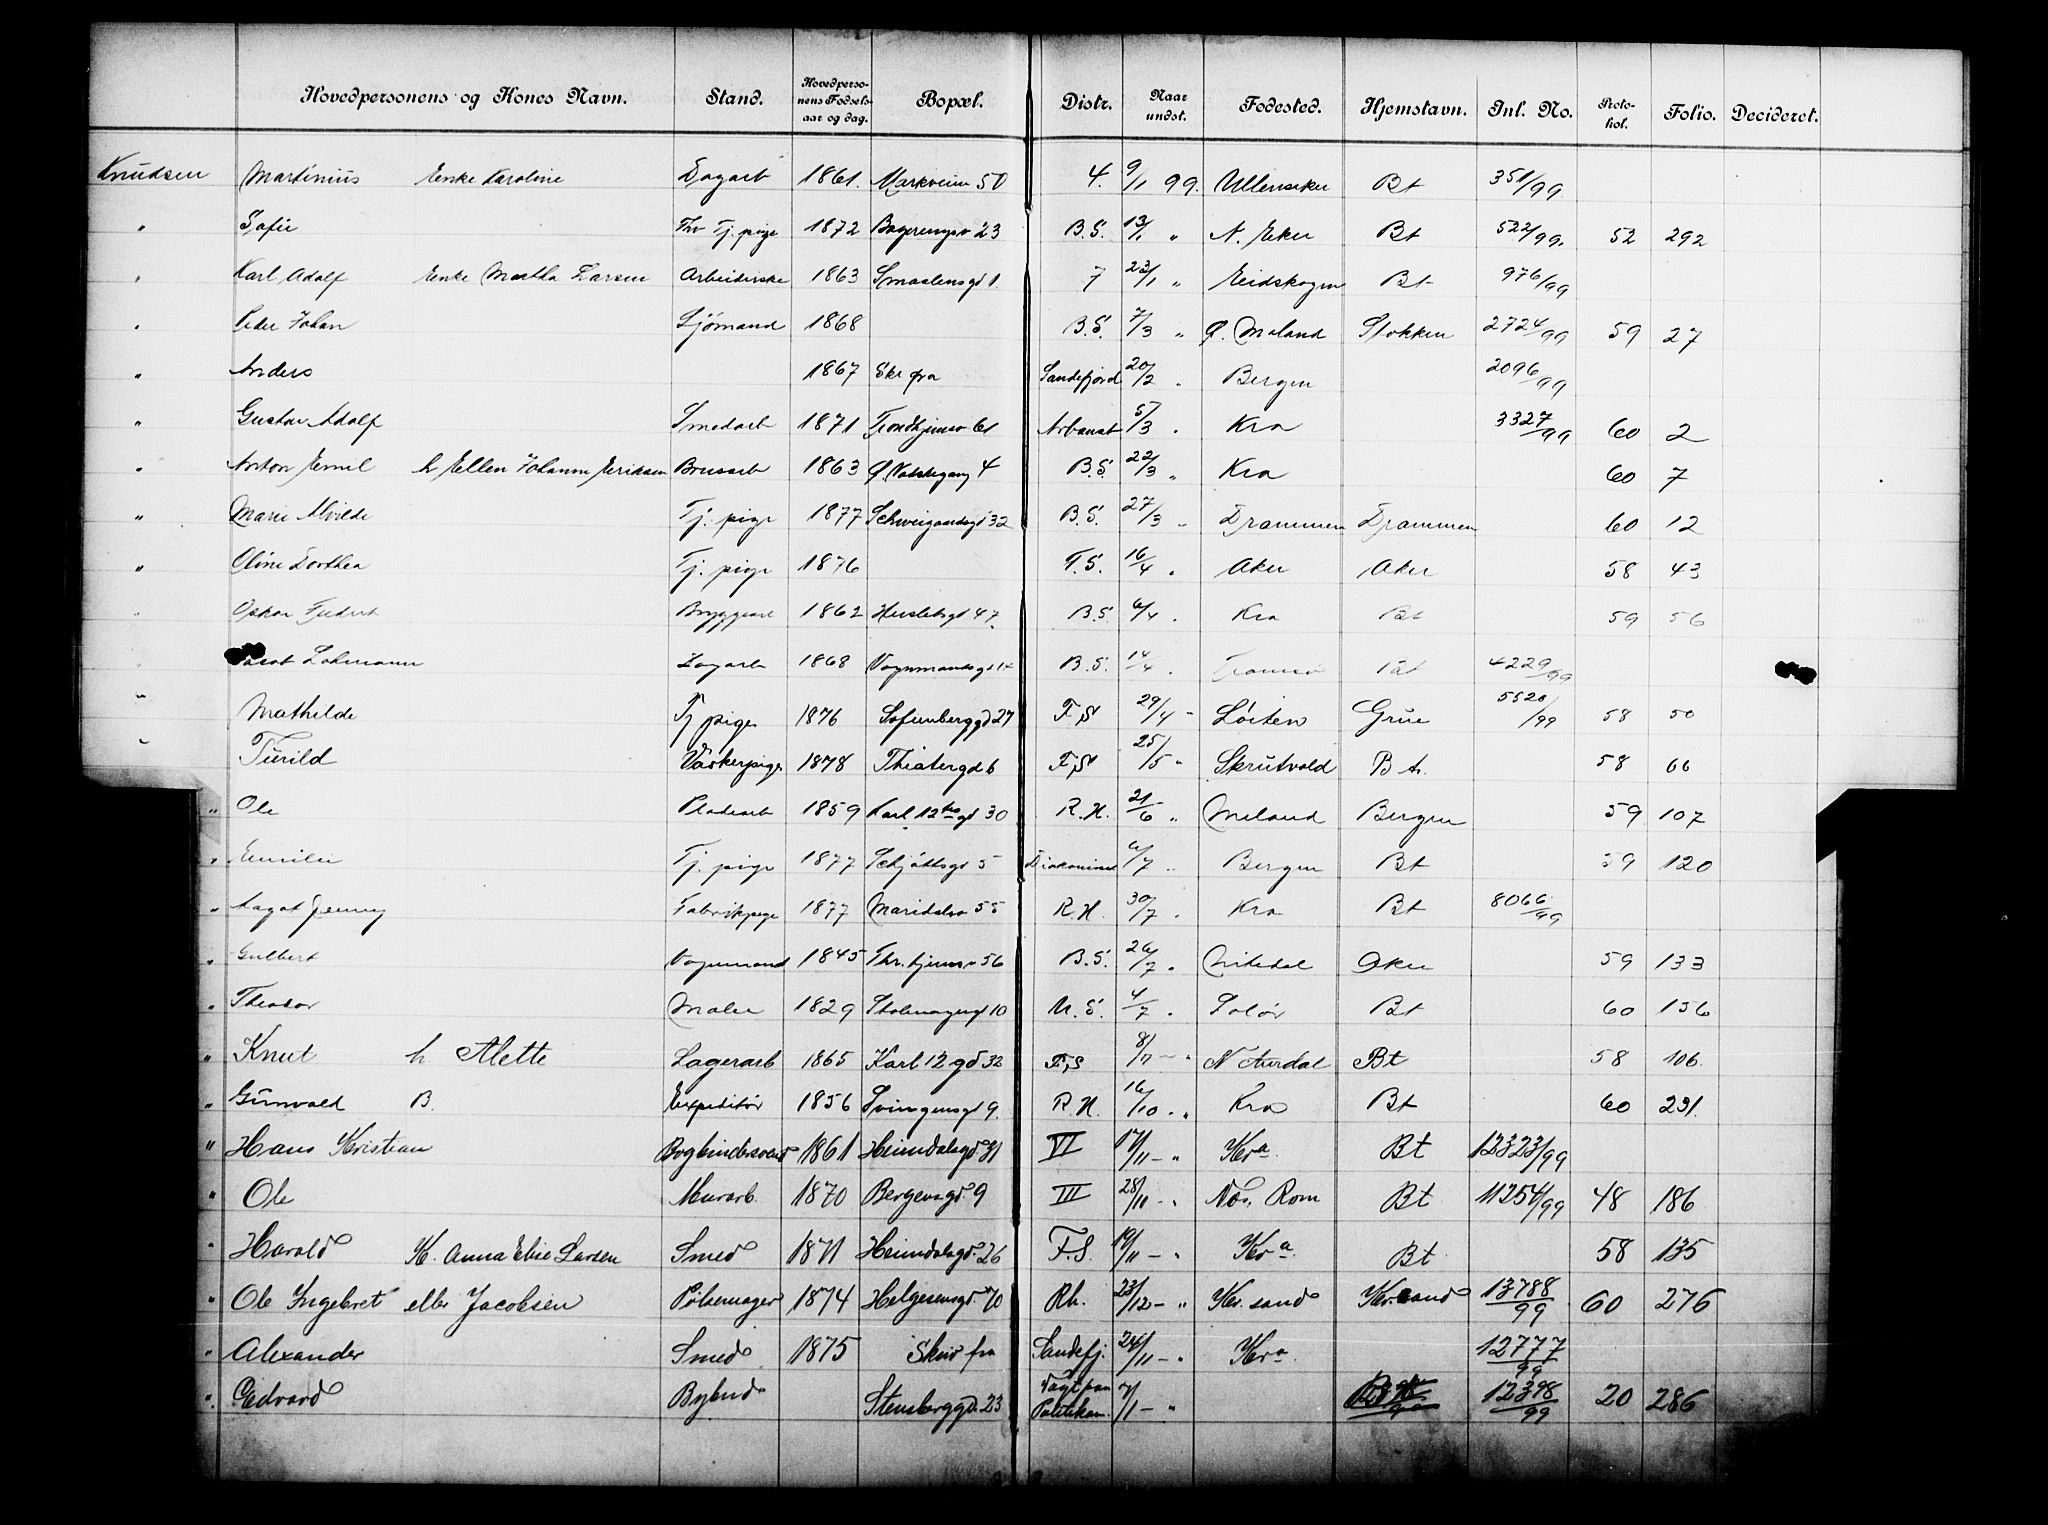 Hovedpersonens og Kones Navn. Stand. Hovedpersonens Fødselsaar og dag. Bopæl. Distr. Naar undst. Fødested. Hjemstavn. Inl. No. Protokol. Folio. Decideret.
Knudsen Martinius Enke Karoline Dagarb 1861. Markveien 50 4. 9/1 99. Ullensaker Bt 351/99
" Sofie Tj. pige 1872 23 B.S. 13/1 " N. Eker Bt 522/99. 52 292
" Karl Adolf Enke Martha Larsen Arbeiderske 1863 Smaalensgd 1. 7 23/1 " Eidskogen Bt 976/99
" Peder Johan Sjømand 1868 B.S. 7/3 " Ø. Moland Stokken 2724/99 59 27
" Anders 1867 Skr fra Sandefjord 20/2 " Bergen 2096/99
" Gustav Adolf Smedarb 1871 Trondhjemsv 61 Arbanst 5/3 " Kra 3327/99 60 2
" Anton Emil h Ellen Johanne Eriksen Brusarb 1863 Ø. Vaskegang 4 B.S. 22/3 " Kra 60 7
" Marie Alvilde Tj. pige 1877 Schweigaardsgd 32 B.S. 27/3 " Drammen Drammen 60 12
" Oline Dorthea Tj. pige 1876 F.S. 16/4 " Aker Aker 58 43
" Oskar Fredrik Bryggearb 1862 Herslebsgd 47. B.S. 6/4 " Kra Bt 59 56
" Jacob Lohmann Dagarb 1868 Vognmandsgd 14 B.S. 14/4 " Tromsø Bt 4229/99
" Mathilde Tj pige 1876 Sofienberggd 27 F,S 29/4 - Løiten Grue 5520/99 58 50
" Turild Vaskerpige 1878 Theatergd 6 F,S 25/5 " Skrutvold Bt. 58 66
" Ole Pladearb 1859 Karl 12tes gd 30 R.H. 21/6 " Meland Bergen 59 107
" Emilie Tj. pige 1877 Schjøttsgd 5 Diakonisse 6/7 " Bergen Bt 59 120
" Aagot Jenny Fabrikpige 1877 Maridalsv 55 R.H. 30/7 " Kra Bt 8066/99
" Gulbert Vognmand 1845 Thr.hjemsv 56 B.S. 26/7 " Nitedal Aker 59 133
" Theodor Maler 1829 Stolmagergd 10 U.S. 4/7 " Solør Bt 60 156
" Knut h Alette Lagerarb 1865 Karl 12 gd 32 F,S 8/11 - " N Aurdal Bt 58 106.
" Gunvald B. Expeditør 1856 Svingensgd 9. R.H. 16/10 " Kra Bt 60 231.
" Hans Kristian Bogbindersvend 1861 Heimdalsgd 31 VI 17/11 - " Kra. Bt 12323/99
" Ole Murarb. 1870 Bergensgd 9 III 28/11 - " Næs, Rom Bt 11254/99 48 186
" Harald K. Anna Elise Larsen Smed 1871 Heimdalsgd. 26 F.S. 19/11 - " Kra. Bt. 58 135
" Ole Ingebret eller Jacobsen Pølsemager 1874 Helgesensgd 70 Rh. 23/12 - " Kr.sand Kr.sand 13788/99 60 276
" Alexander Smed 1875 Skriv fra Sandefj. 24/11 - " Kra. 12777/99
" Edvard Bybud Stensberggd. 23 Vagt paa Politikam. 7/1 - " 12398/99 20 286